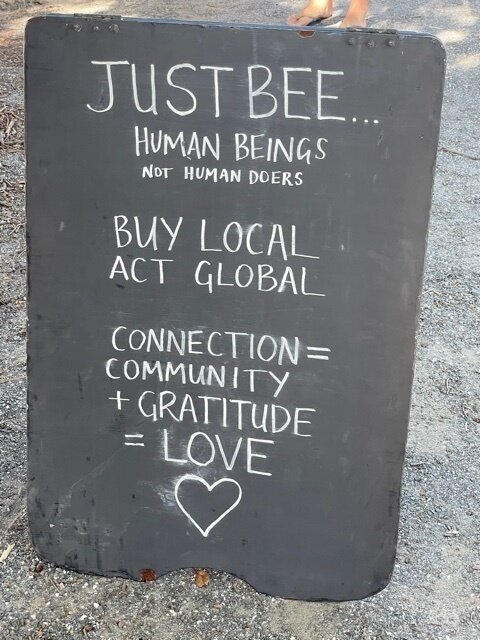 JUST BEE...
HUMAN BEINGS
NOT HUMAN DOERS
BUY LOCAL
ACT GLOBAL
CONNECTION =
COMMUNITY
+ GRATITUDE
= LOVE